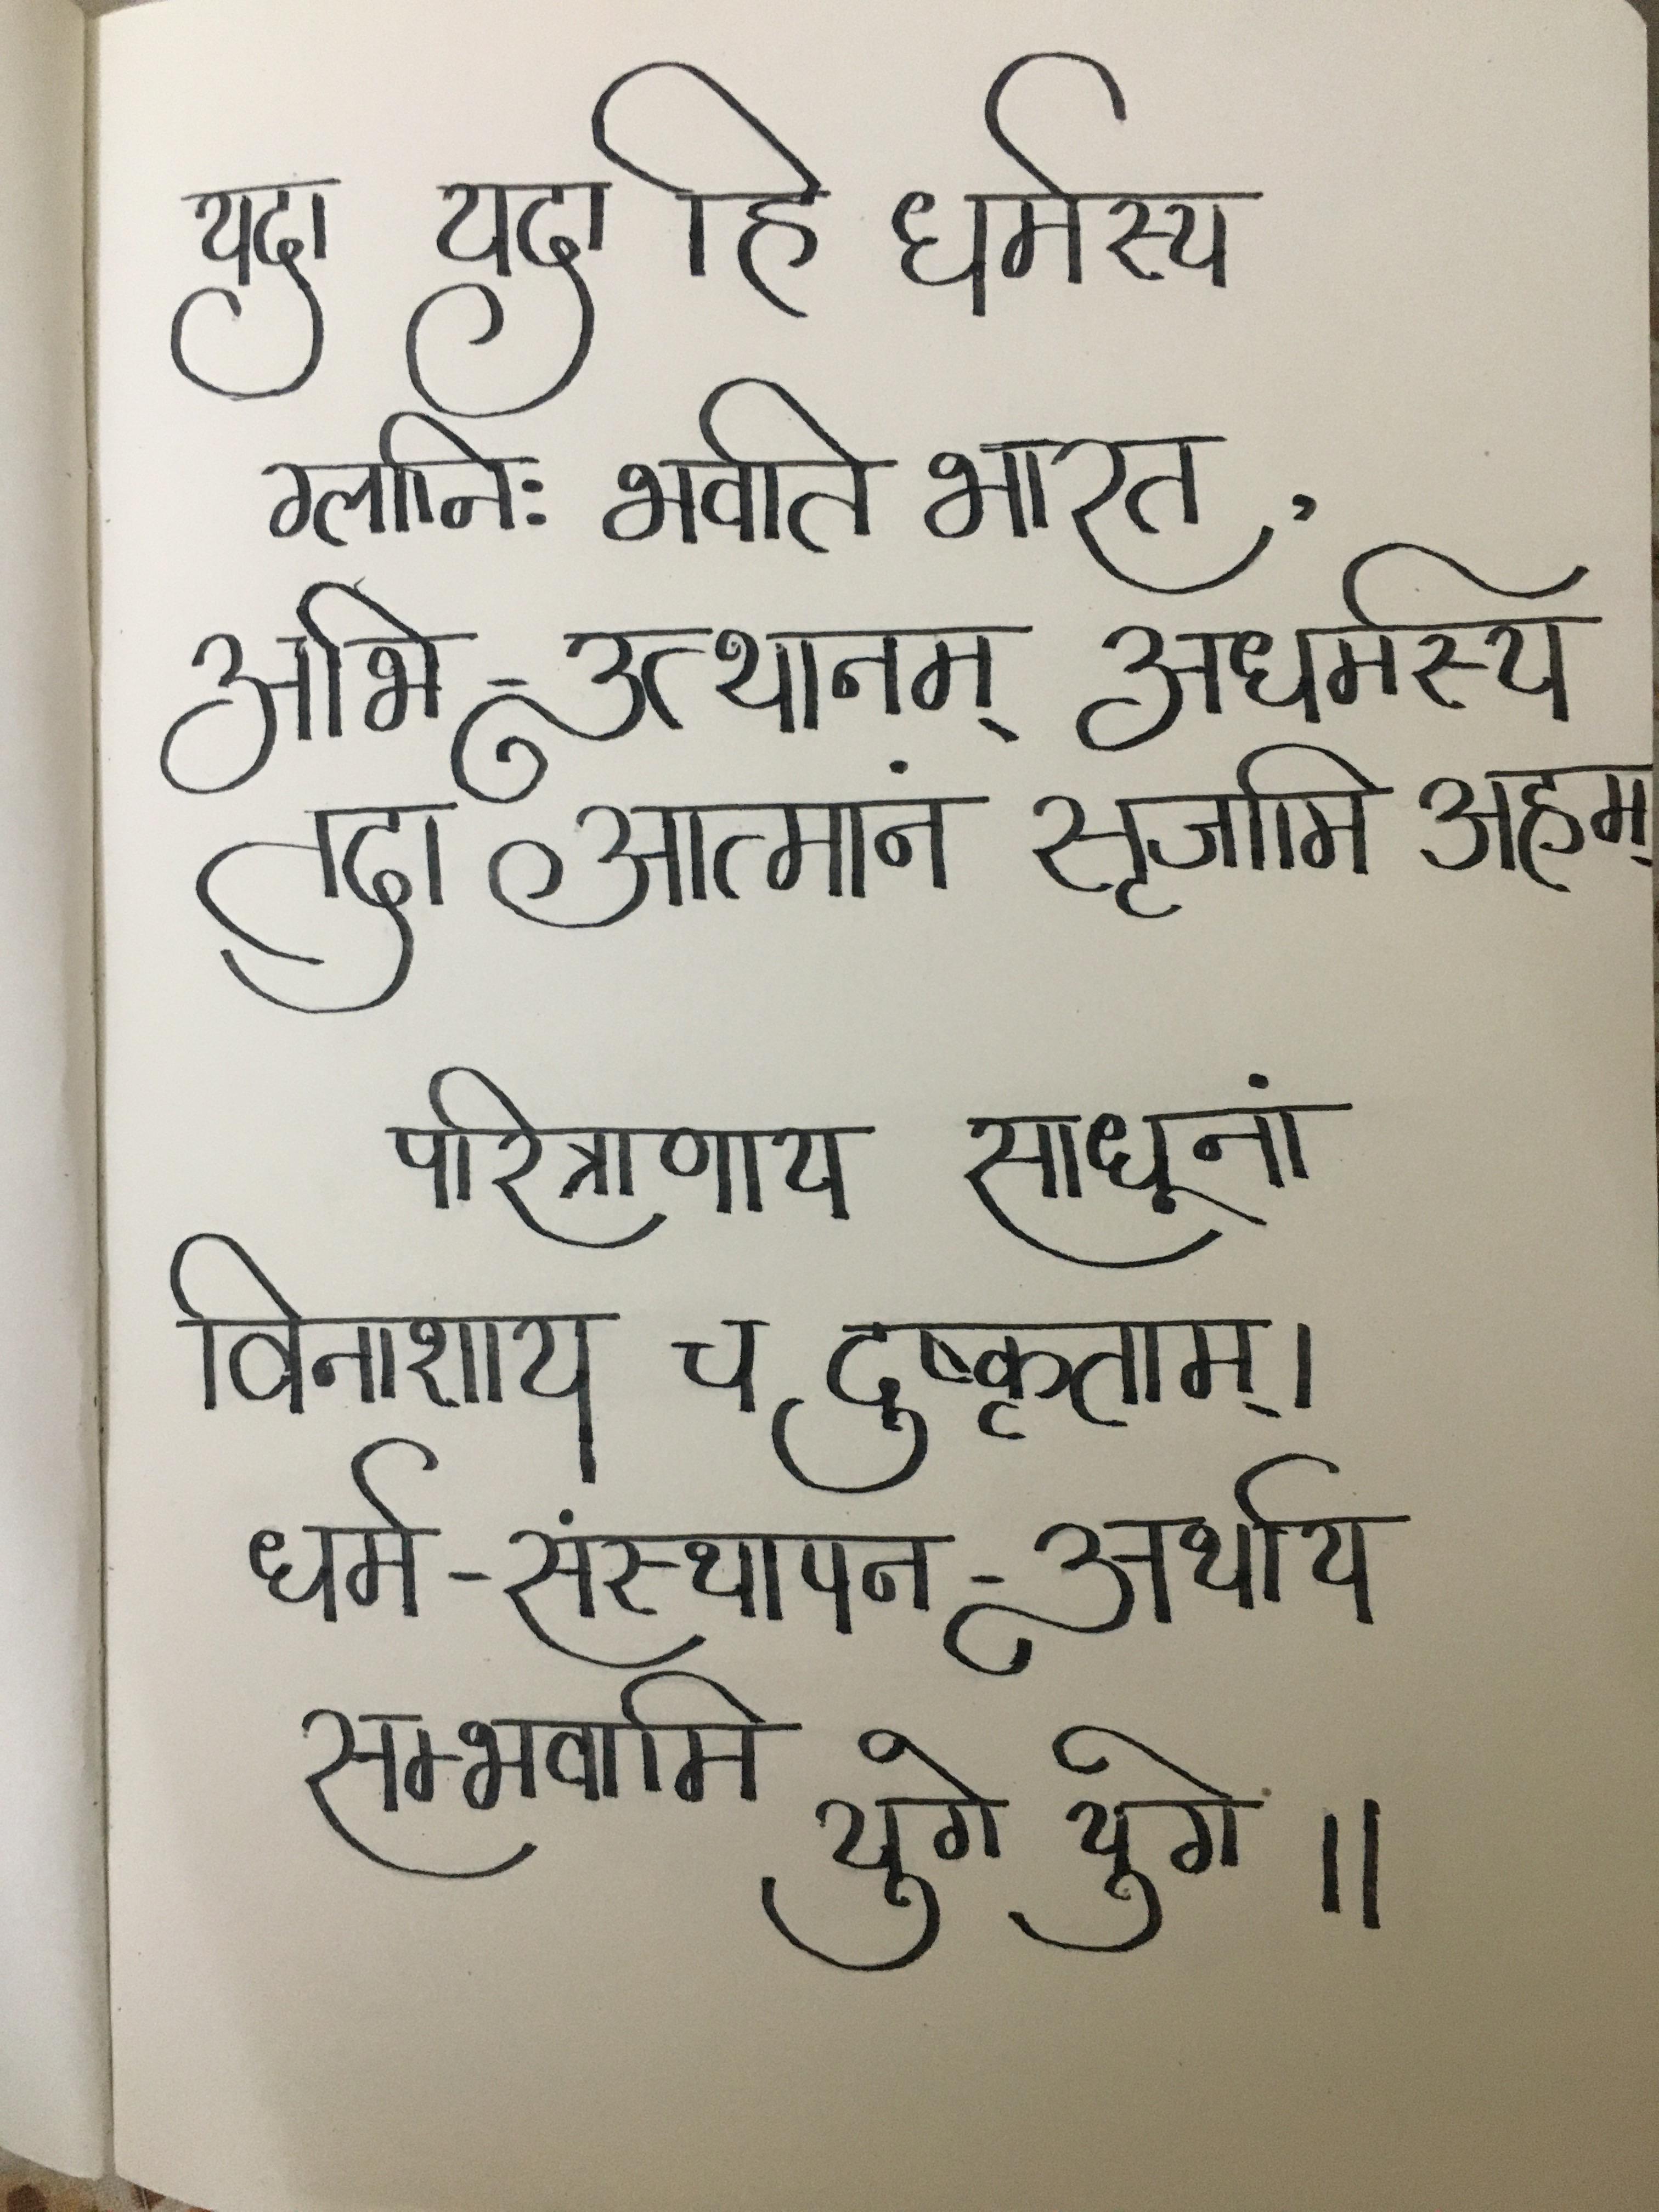 यदा यदा हि धर्मस्य
ग्लानिः भवति भारत,
अभि-उत्थानम् अधर्मस्य
तदा आत्मानं सृजामि अहम्
परित्राणाय साधूनां
विनाशाय च दुष्कृताम्।
धर्म-संस्थापन-अर्थाय
सम्भवामि युगे युगे ॥